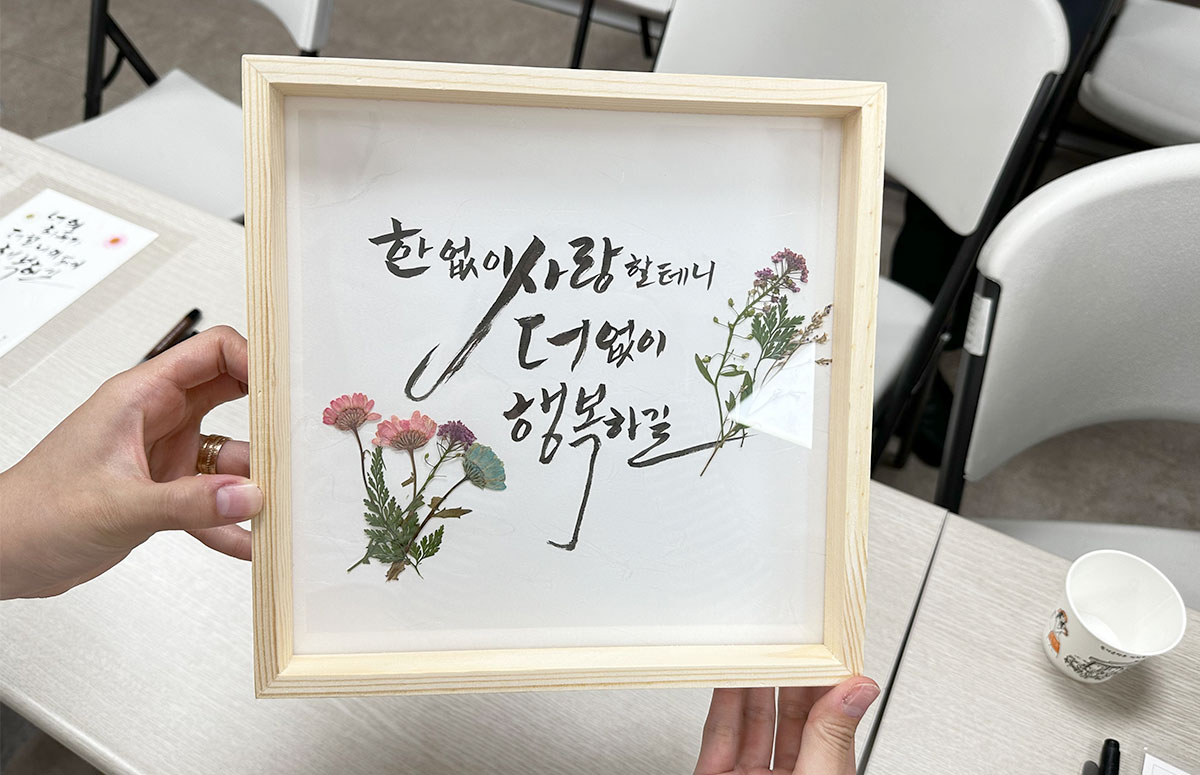 한없이 사랑할테니
더없이
행복하길